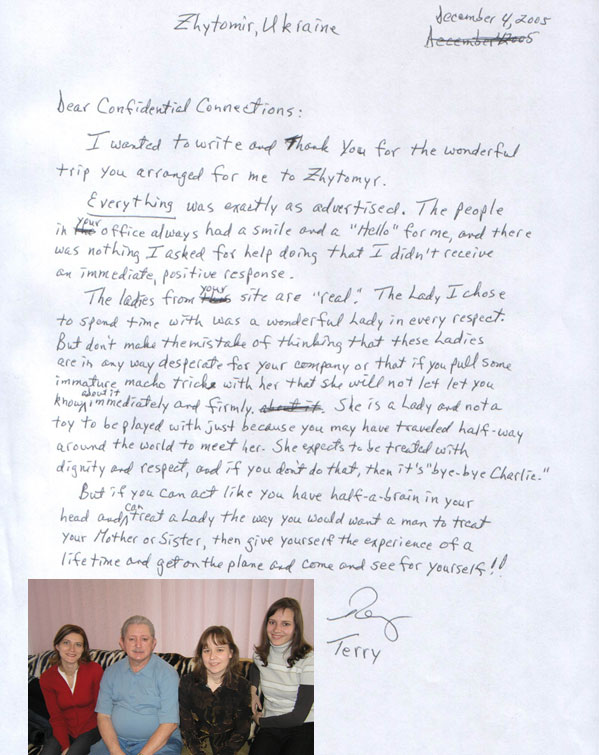 Zhytomir, Ukraine
December 4, 2005
Dear Confidential Connections:
I wanted to write and Thank You for the wonderful
trip you arranged for me to Zhytomyr.
Everything was exactly as advertised. The people
in your office always had a smile and a "Hello" for me, and there
was nothing I asked for help doing that I didn't receive
an immediate, positive response.
The ladies from your site are "real". The Lady I chose
to spend time with was a wonderful Lady in every respect.
But don't make the mistake of thinking that these Ladies
are in any way desperate for your company or that if you pull some
immature macho tricks with her that she will not let let you
know about it immediately and firmly. She is a Lady and not a
toy to be played with just because you may have traveled half-way
around the world to meet her. She expects to be treated with
dignity and respect, and if you don't do that, then it's "bye-bye Charlie."
But if you can act like you have half-a-brain in your
head and can treat a Lady the way you would want a man to treat
your Mother or Sister, then give yourself the experience of a
lifetime and get on the plane and come and see for yourself!!
Terry